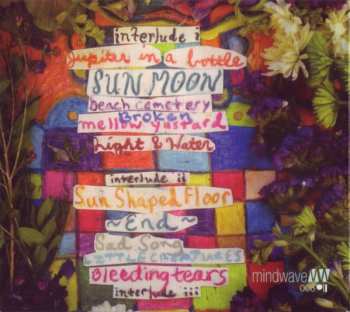 interlude i
Jupiter in a bottle
SUN MOON
beach cemetery
Broken
mellow yustard
Night & Water
interlude ii
Sun Shaped Floor
~End~
Sad Song
LITTLE CREATURES
Bleeding tears
interlude iii
mindwave